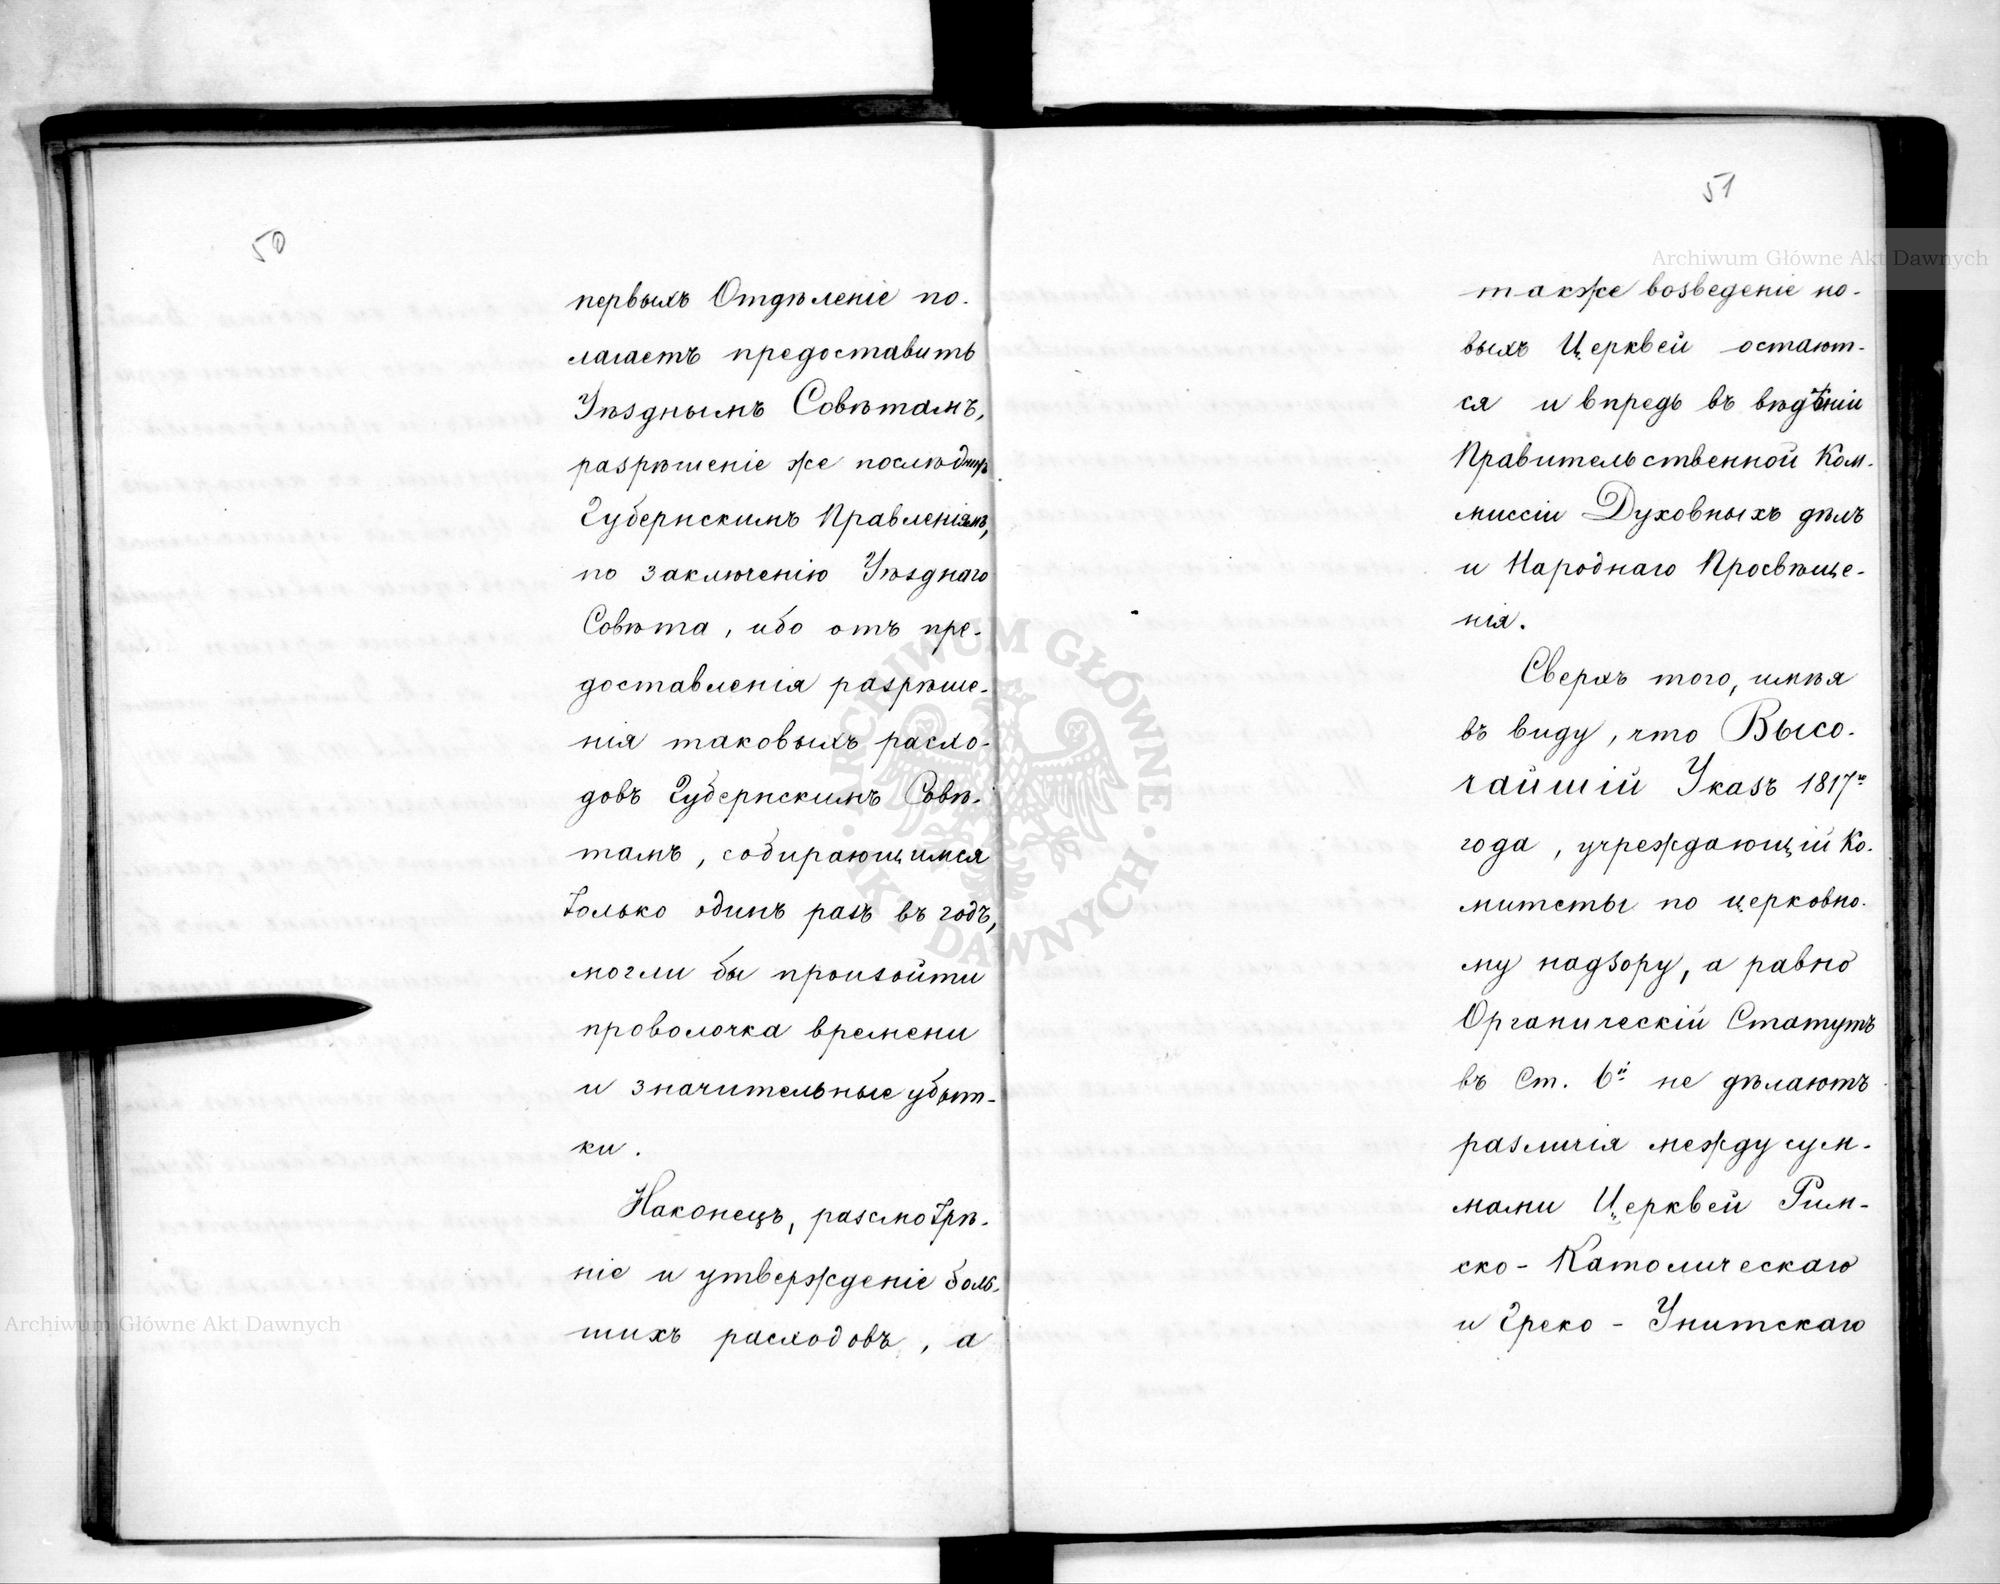 50
первыхъ Отдѣленіе по-
лагаетъ предоставить
Уѣзднымъ Совѣтамъ,
разрѣшеніе же послѣднихъ
Губернскимъ Правленіямъ,
по заключенію Уѣзднаго
Совѣта, ибо отъ пре-
доставленія разрѣше-
нія таковыхъ расхо-
довъ Губернскимъ Совѣ-
тамъ, собирающимся
только одинъ разъ въ годъ,
могли бы произойти
проволочка времени
и значительные убыт-
ки.
Наконецъ, разсмотрѣ-
ніе и утвержденіе боль-
шихъ расходовъ, а
51
также возведеніе но-
выхъ Церквей остают-
ся и впредь въ вѣдѣніи
Правительственной Ком-
миссіи Духовныхъ дѣлъ
и Народнаго Просвѣще-
нія.
Сверхъ того, имѣя
въ виду, что Высо-
чайшій Указъ 1817го
года, учреждающій Ко-
митеты по церковно-
му надзору, а равно
Органическій Статутъ
въ Ст. 6й не дѣлаютъ
различія между сум-
мами Церквей Рим-
ско-Католическаго
и Греко-Унитскаго
Archiwum Główne Akt Dawnych
Archiwum Główne Akt Dawnych
ARCHIWUM GŁÓWNE
AKT DAWNYCH